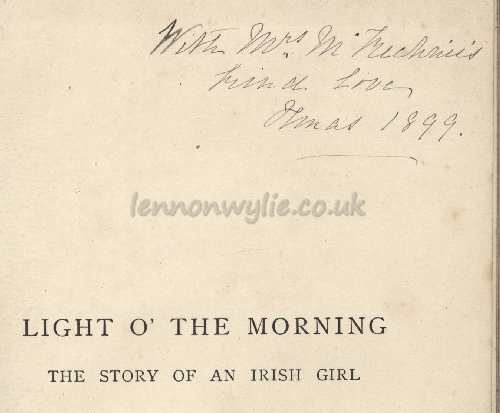 With Mrs. McKechnie's
kind Love,
Xmas 1899.
lennonwylie.co.uk
LIGHT O' THE MORNING
THE STORY OF AN IRISH GIRL